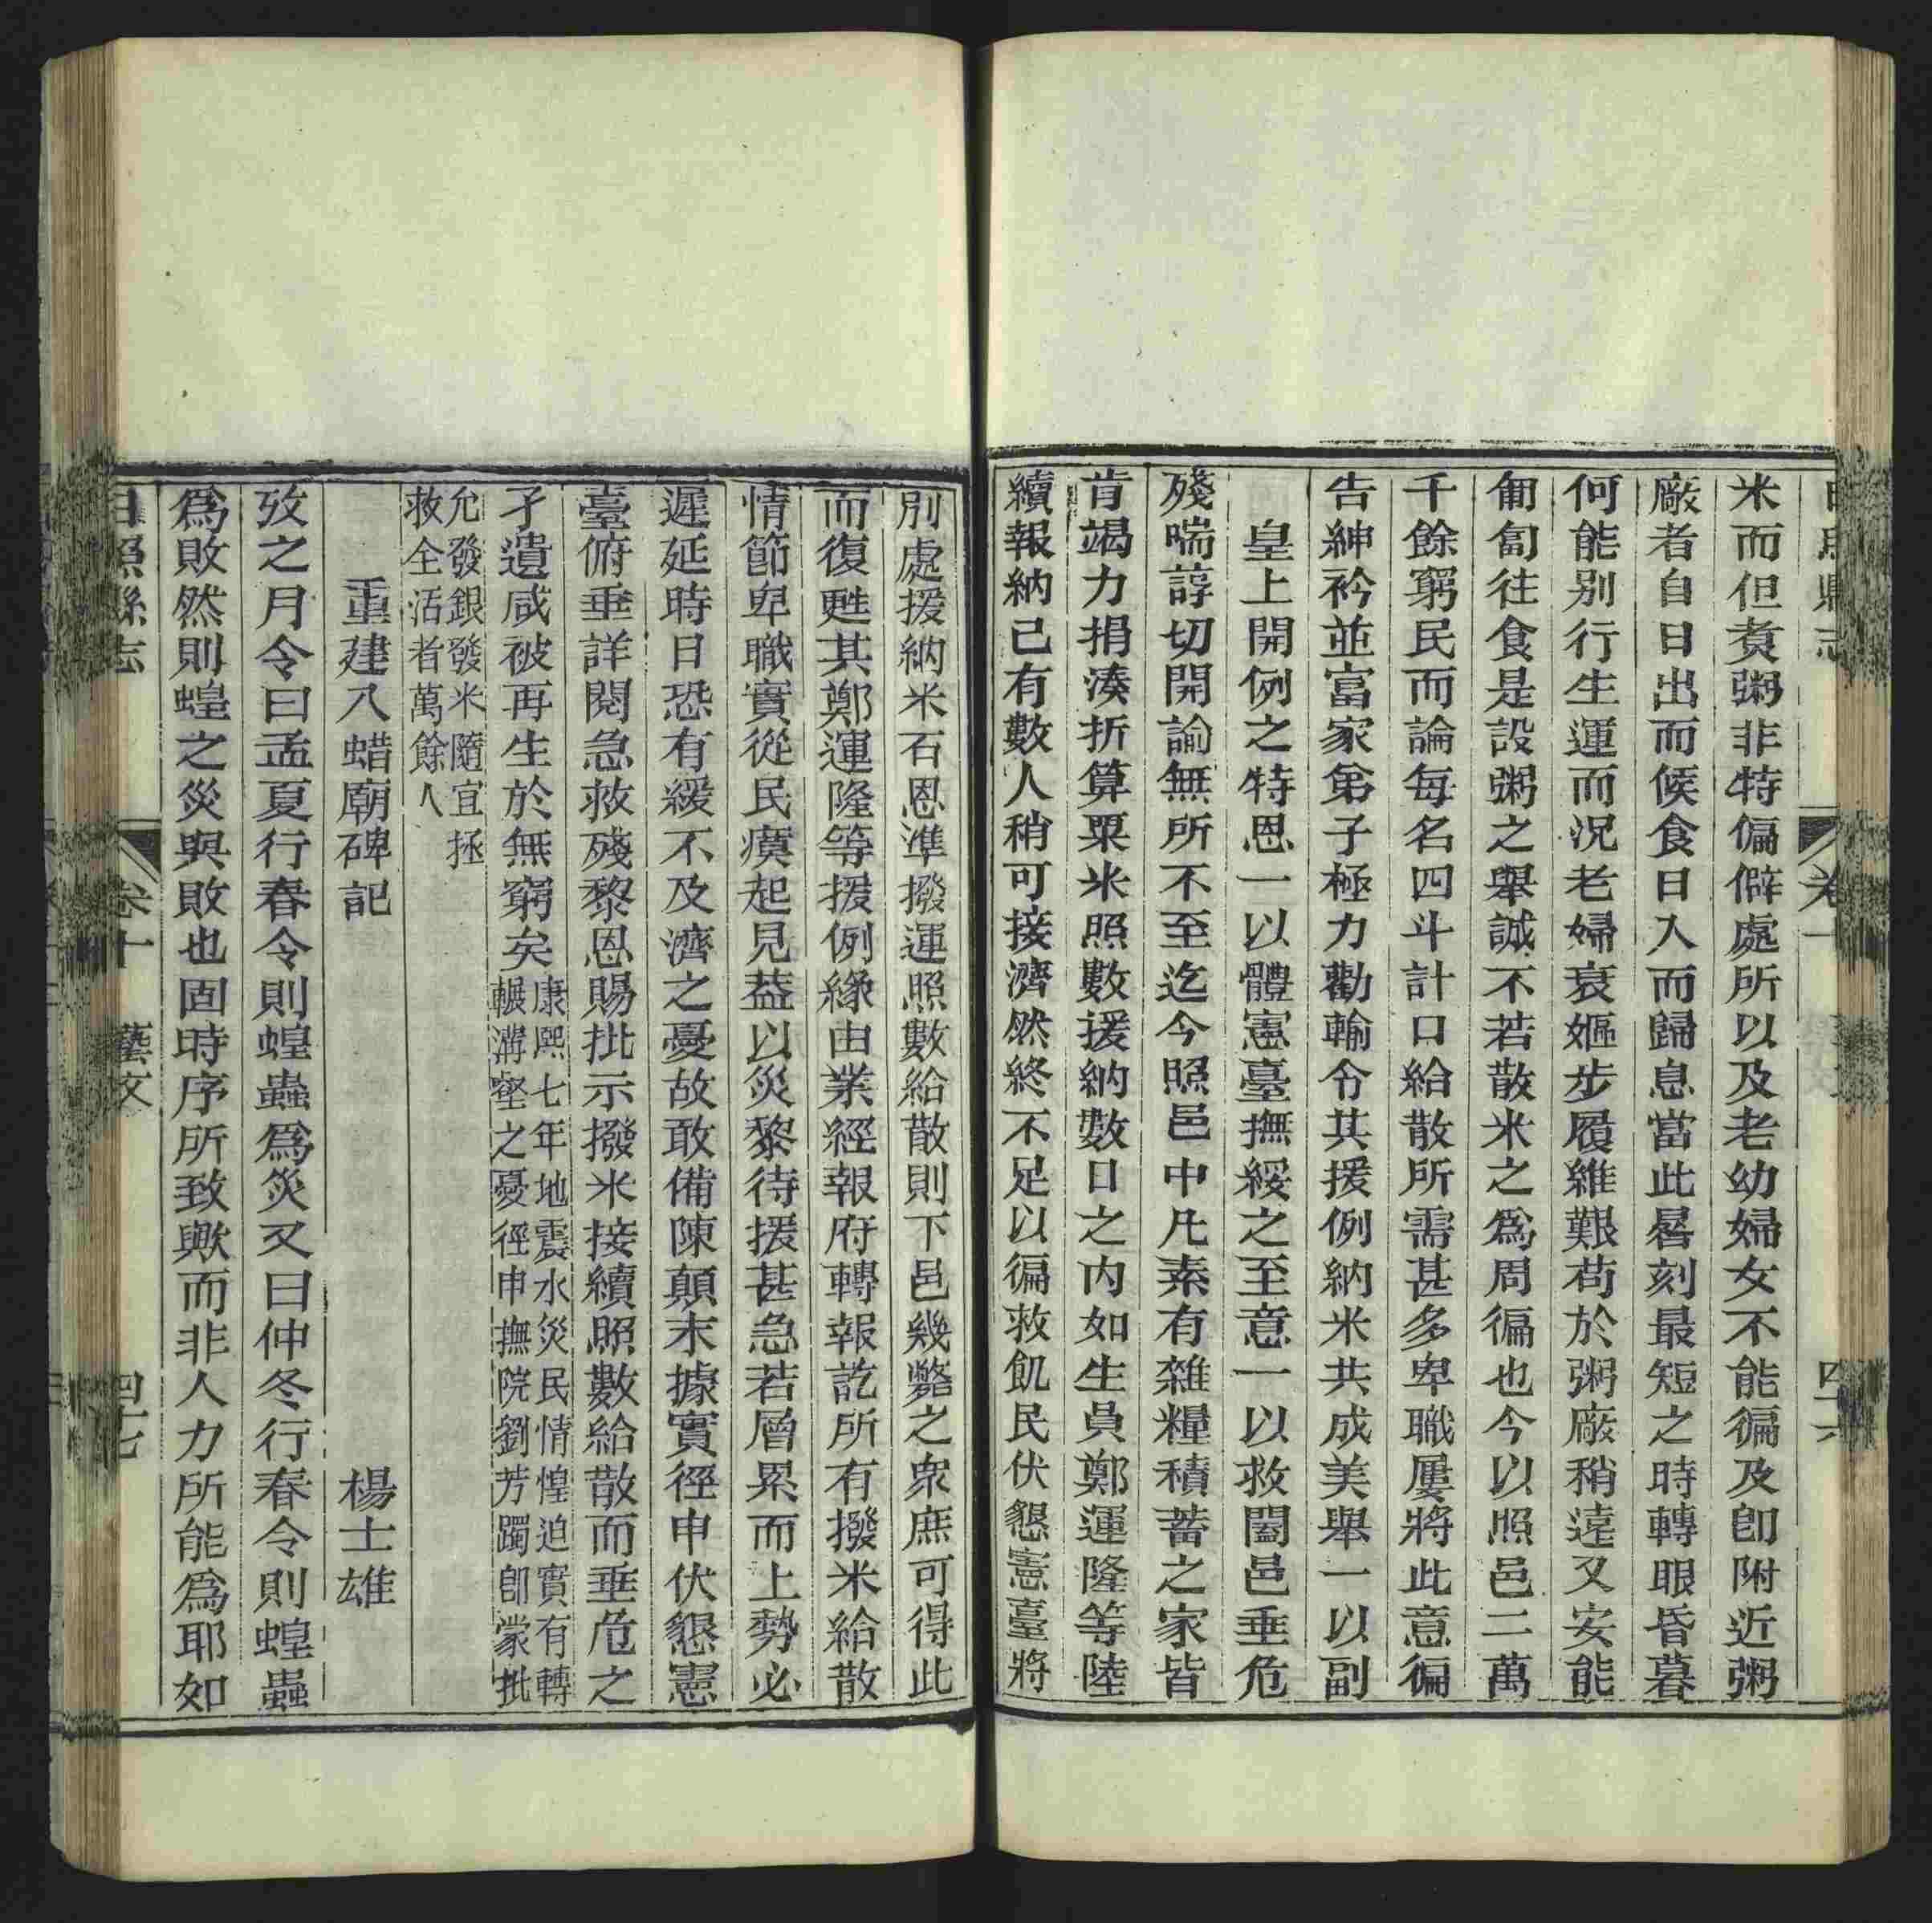 米而但煑粥非特偏僻處所以及老幼婦女不能徧及卽附近粥
廠者自日出而候食日入而歸息當此晷刻最短之時轉眼昏暮
何能别行生運而况老婦衰嫗步履維艱苟於粥廠稍遠又安能
匍匐往食是設粥之舉誠不若散米之爲周徧也今以照邑二萬
千餘窮民而論每名四斗計口給散所需甚多卑職屢將此意徧
告紳衿並富家第子極力勸輸令其援例納米共成美舉一以副
皇上開例之特恩一以體憲臺撫綏之至意一以救闔邑垂危
殘喘諄切開諭無所不至迄今照邑中凡素有雜糧積蓄之家皆
肯竭力捐湊折算粟米照數援納數日之内如生員鄭運隆等陸
續報納己有數人稍可接濟然終不足以徧救飢民伏懇憲臺將
別處援納米石恩準撥運照數給散則下邑幾斃之衆庶可得此
而復甦其鄭運隆等援例緣由業經報府轉報訖所有撥米給散
情節卑職實從民瘼起見葢以災黎待援甚急若層累而上勢必
遲延時日恐有緩不及濟之憂故敢備陳顛末據實徑申伏懇憲
臺俯垂詳閱急救殘黎恩賜批示撥米接續照數給散而垂危之
孑遺咸被再生於無窮矣
康熙七年地震水災民情惶迫實有轉
輾溝壑之憂徑申撫院劉芳躅卽蒙批
允發銀發米隨宜拯
救全活者萬餘人
重建八蜡廟碑記 楊士雄
攷之月令曰孟夏行春令則蝗蟲爲災又曰仲冬行春令則蝗蟲
爲敗然則蝗之災與敗也固時序所致歟而非人力所能爲耶如
日照縣志 卷十 藝文 四十七